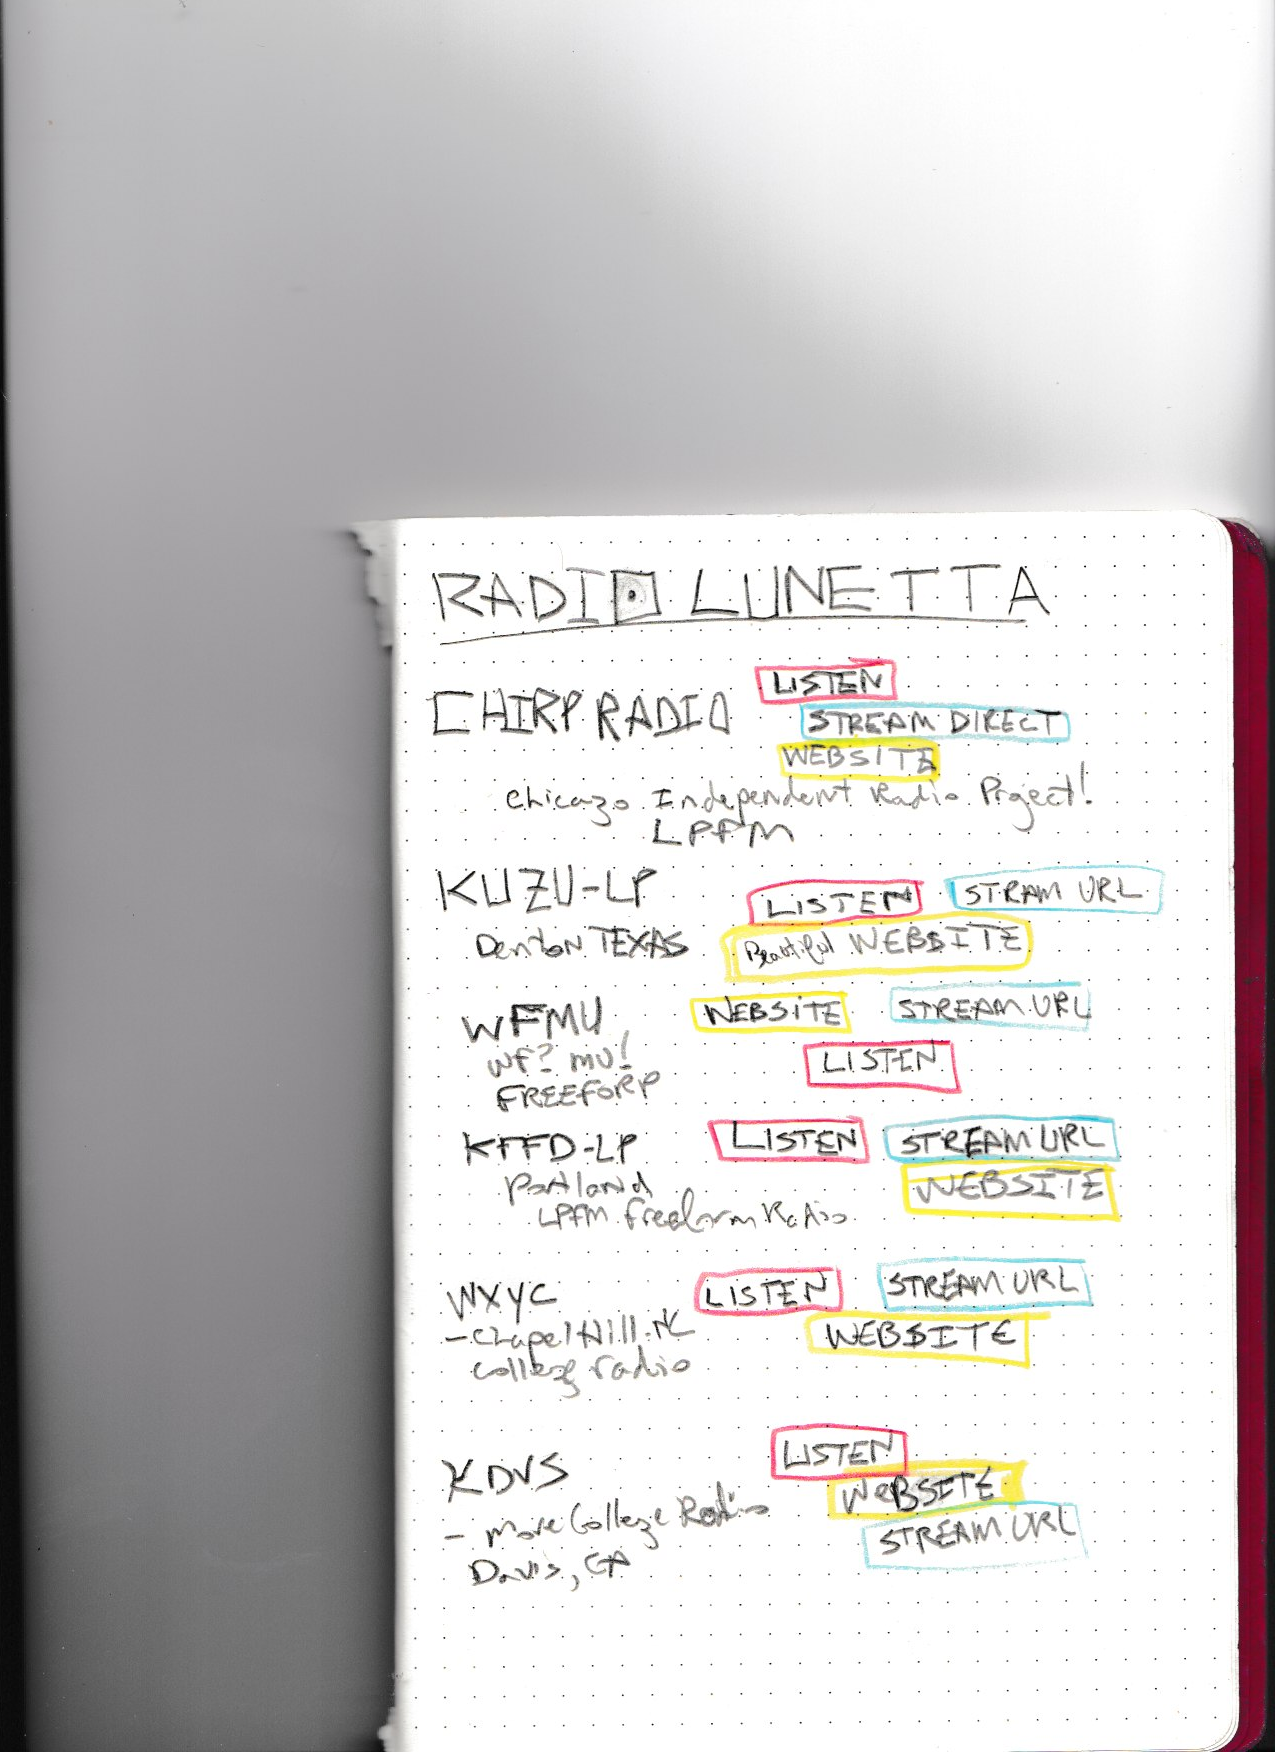 RADIO LUNETTA
CHIRP RADIO
LISTEN
STREAM DIRECT
WEBSITE
Chicago Independent Radio Project!
LPFM
KUZU-LP
LISTEN
STRAM URL
Denton TEXAS
Beautiful WEBSITE
WFMU
WEBSITE
STREAM URL
WF? MU!
LISTEN
FREEFORP
KFFD-LP
LISTEN
STREAM URL
Portland
WEBSITE
LPFM Freeform Radio
WXYC
LISTEN
STREAM URL
- Chapel Hill. NC
WEBSITE
College radio
KDVS
LISTEN
WEBSITE
- More College Radio
STREAM URL
Davis, CA